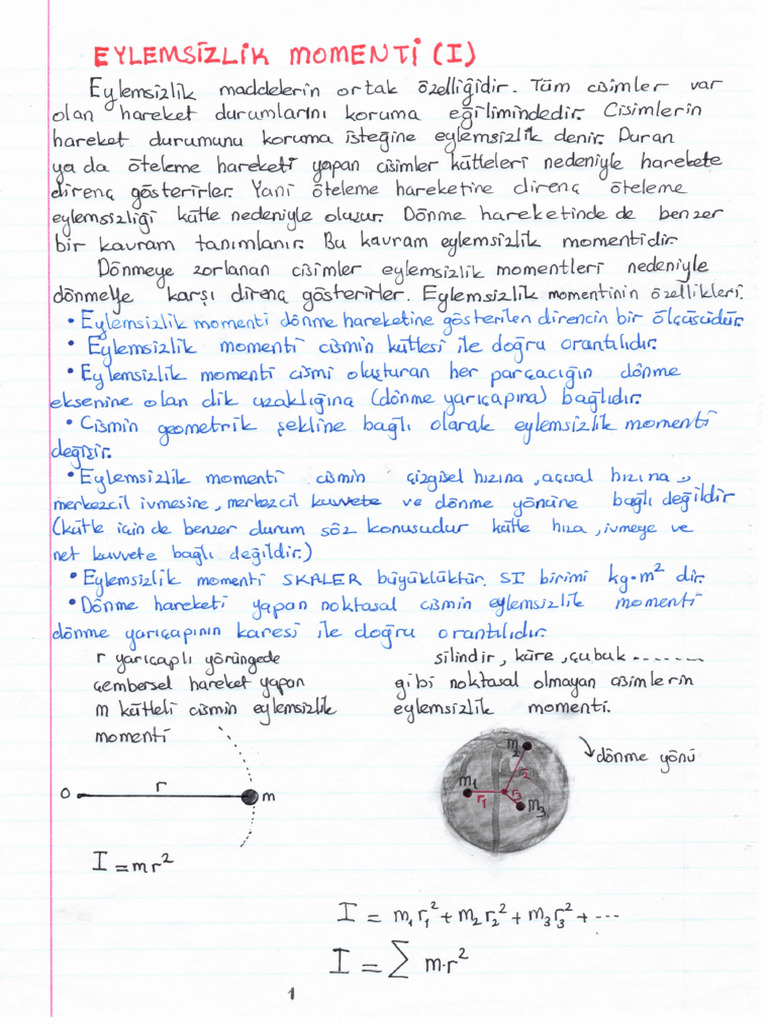 EYLEMSİZLİK MOMENTİ (I)
Eylemsizlik maddelerin ortak özelliğidir. Tüm cisimler var
olan hareket durumlarını koruma eğilimindedir. Cisimlerin
hareket durumunu koruma isteğine eylemsizlik denir. Duran
ya da öteleme hareketi yapan cisimler kütleleri nedeniyle harekete
direnç gösterirler. Yani öteleme hareketine direnç öteleme
eylemsizliği kütle nedeniyle oluşur. Dönme hareketinde de benzer
bir kavram tanımlanır. Bu kavram eylemsizlik momentidir.
Dönmeye zorlanan cisimler eylemsizlik momentleri nedeniyle
dönmeye karşı direnç gösterirler. Eylemsizlik momentinin özellikleri.
• Eylemsizlik momenti dönme hareketine gösterilen direncin bir ölçüsüdür.
• Eylemsizlik momenti cismin kütlesi ile doğru orantılıdır.
• Eylemsizlik momenti cismi oluşturan her parçacığın dönme
eksenine olan dik uzaklığına (dönme yarıçapına) bağlıdır.
• Cismin geometrik şekline bağlı olarak eylemsizlik momenti
değişir.
• Eylemsizlik momenti cismin çizgisel hızına, açısal hızına,
merkezcil ivmesine, merkezcil kuvvete ve dönme yönüne bağlı değildir
(kütle için de benzer durum söz konusudur kütle hıza, ivmeye ve
net kuvvete bağlı değildir.)
• Eylemsizlik momenti SKALER büyüklüktür. SI birimi kg·m² dir.
• Dönme hareketi yapan noktasal cismin eylemsizlik momenti
dönme yarıçapının karesi ile doğru orantılıdır.
r yarıçaplı yörüngede
çembersel hareket yapan
m kütleli cismin eylemsizlik
momenti
silindir, küre, çubuk .......
gibi noktasal olmayan cisimlerin
eylemsizlik momenti.
O r m
I = mr²
dönme yönü
m₂
r₂
m₁ r₁ r₃ m₃
I = m₁r₁² + m₂r₂² + m₃r₃² + ...
I = ∑ m·r²
1